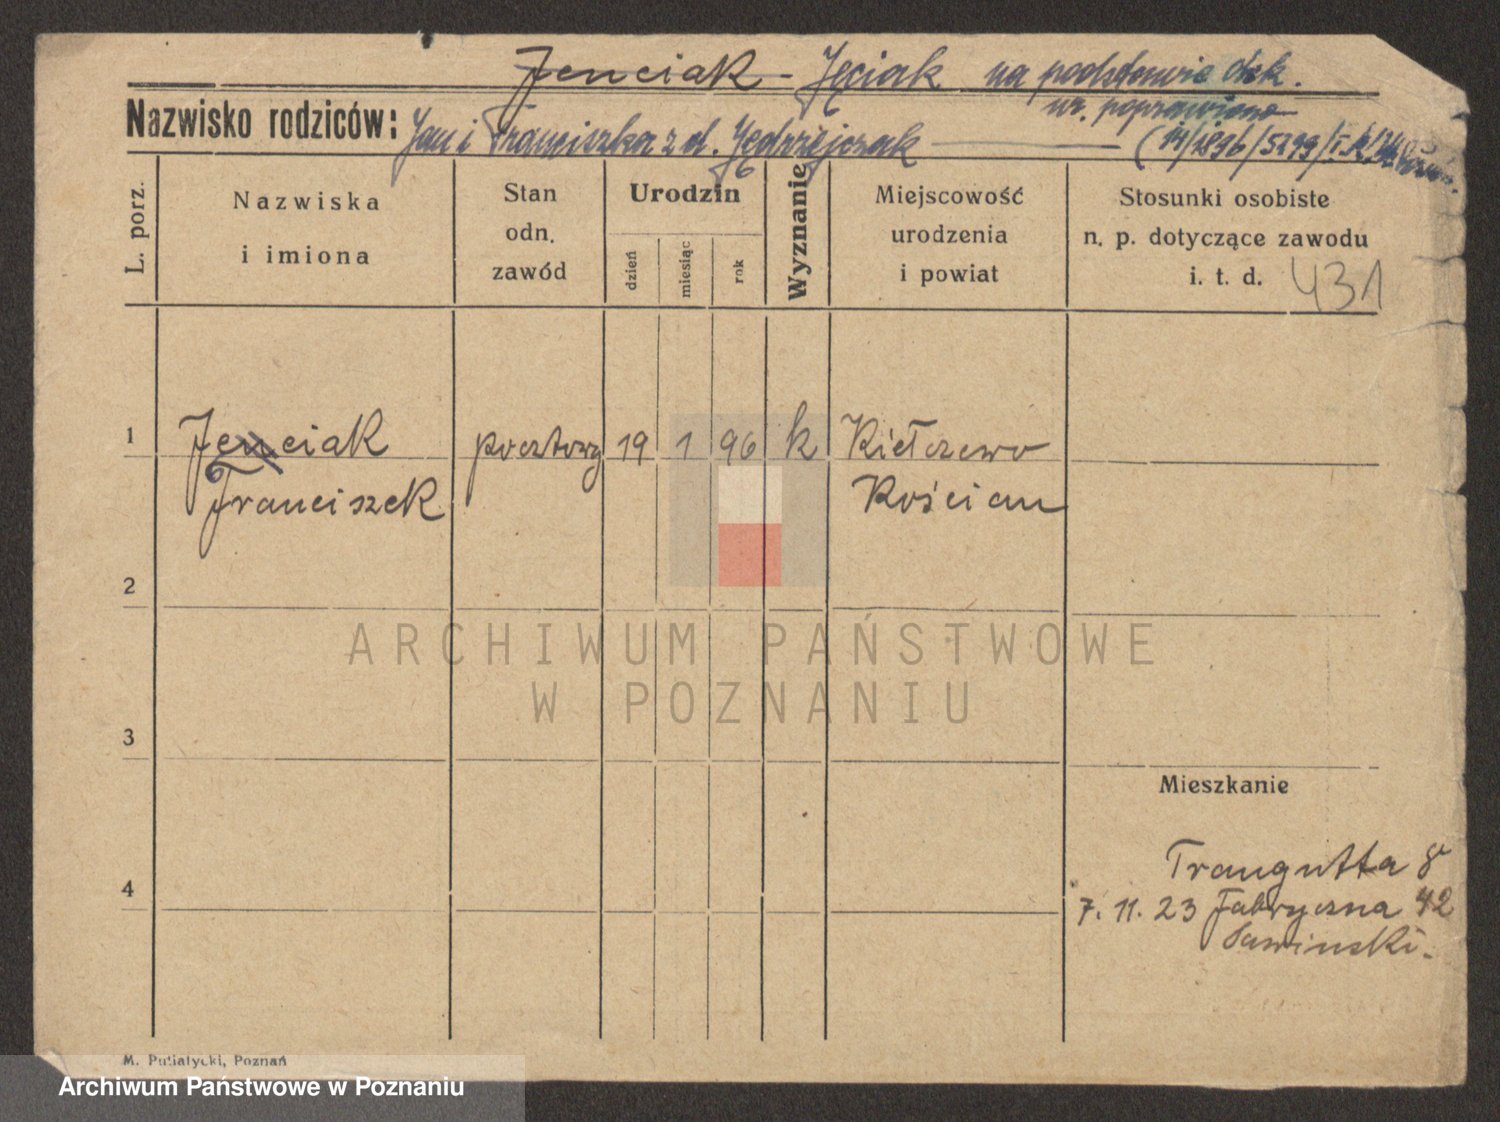 Jenciak - Jęciak na podstawie dek.
ur. poprawiono
Nazwisko rodziców: Jan i Franciszka z d. Jędrzejczak (14/1896/5299/I
L. porz.
Nazwiska i imiona
Stan odn. zawód
Urodzin
dzień
miesiąc
rok
Wyznanie
Miejscowość urodzenia i powiat
Stosunki osobiste n. p. dotyczące zawodu i. t. d. 431
1 Jenciak pocztowy 19 1 96 k Kiełczewo
Franciszek Kościan
2
3
Mieszkanie
Traugutta 8
4
7. 11. 23 Fabryczna 42
Sawinski.
M. Putiatycki, Poznań
ARCHIWUM PAŃSTWOWE
W POZNANIU
Archiwum Państwowe w Poznaniu